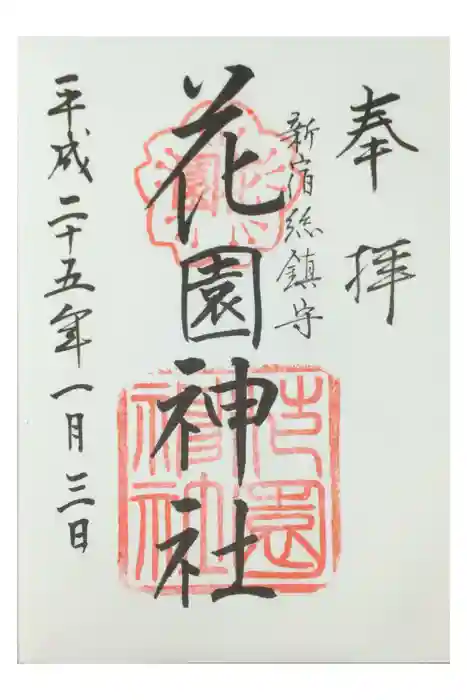 奉拝
新宿総鎮守
花園神社
平成二十五年一月三日
花園神社